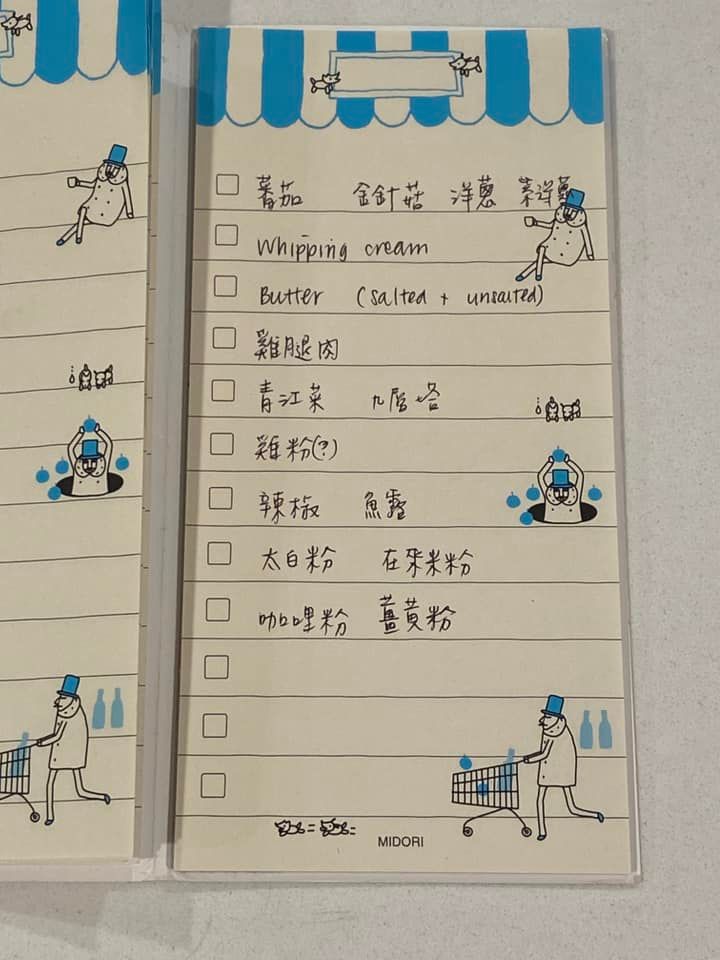 蕃茄 金針菇 洋蔥 紫洋蔥
Whipping cream
Butter (salted + unsalted)
雞腿肉
青江菜 九層塔
雞粉(?)
辣椒 魚露
太白粉 在來米粉
咖哩粉 薑黃粉
MIDORI